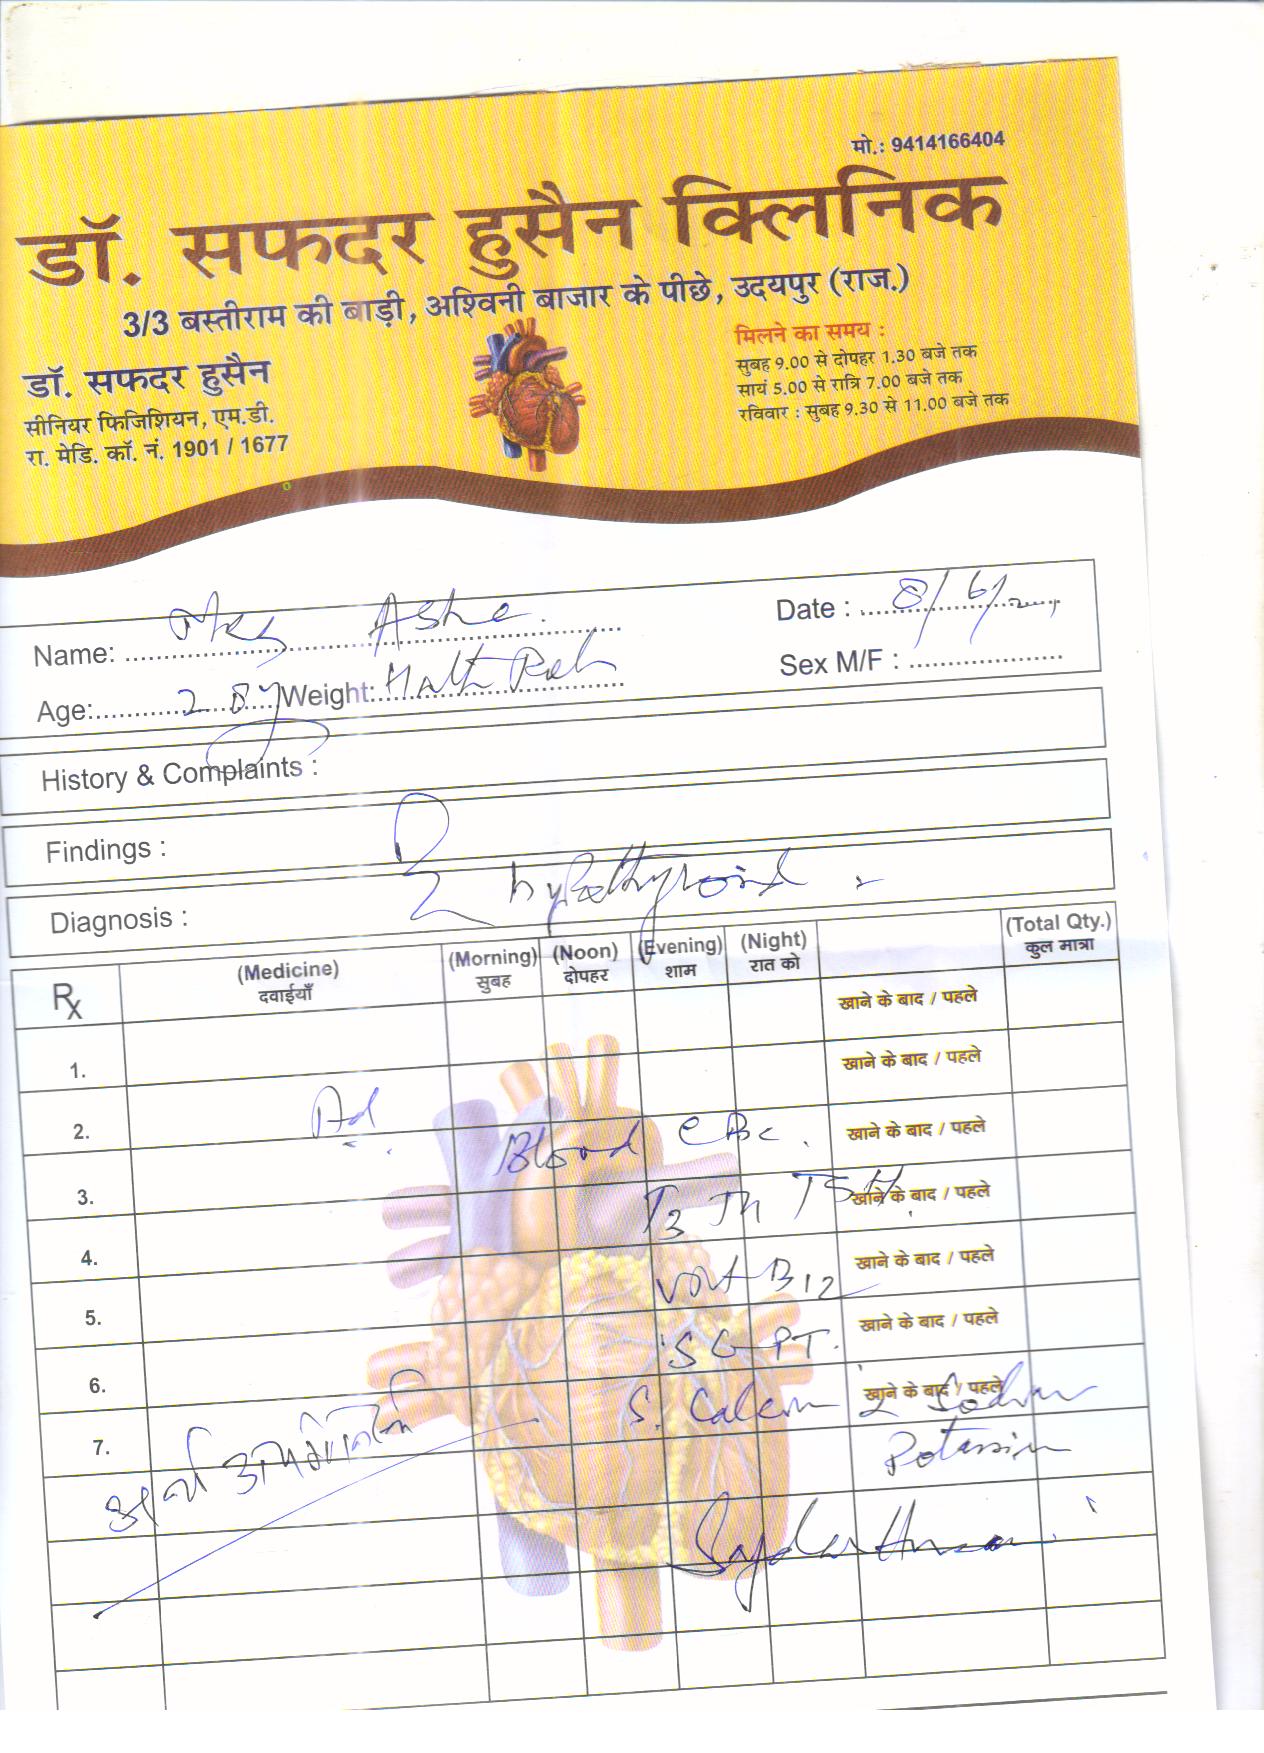 मो.: 9414166404
डॉ. सफदर हुसैन क्लिनिक
3/3 बस्तीराम की बाड़ी, अश्विनी बाजार के पीछे, उदयपुर (राज.)
डॉ. सफदर हुसैन
सीनियर फिजिशियन, एम.डी.
रा. मेडि. कॉ. नं. 1901 / 1677
मिलने का समय :
सुबह 9.00 से दोपहर 1.30 बजे तक
सायं 5.00 से रात्रि 7.00 बजे तक
रविवार : सुबह 9.30 से 11.00 बजे तक
Name: Mrs Asha
Date : 8/6/
Age: 28y Weight:
Sex M/F :
History & Complaints :
Findings :
Diagnosis : hypothyroid
Rx (Medicine) (Morning) (Noon) (Evening) (Night) (Total Qty.)
दवाईयाँ सुबह दोपहर शाम रात को कुल मात्रा
खाने के बाद / पहले
1. खाने के बाद / पहले
2. Ad Blood CBC. खाने के बाद / पहले
3. T3 T4 TSH खाने के बाद / पहले
4. Vit B12 खाने के बाद / पहले
5. SGPT. खाने के बाद / पहले
6. S. Calcium Sodium खाने के बाद / पहले
7. Potassium